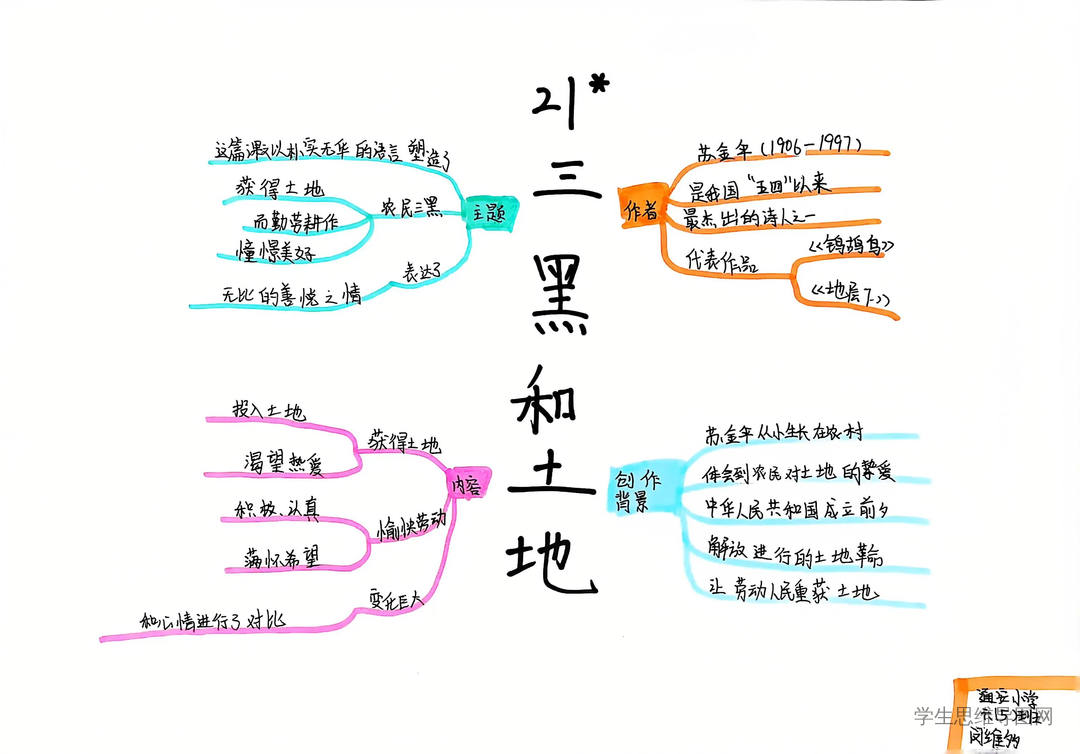 21*
三
黑
和
土
地
主题
这篇课以朴实无华的语言塑造了
农民三黑
获得土地
而勤劳耕作
憧憬美好
表达了
无比的喜悦之情
作者
苏金伞(1906-1997)
是我国“五四”以来
最杰出的诗人之一
代表作品
《鹁鸪鸟》
内容
获得土地
投入土地
渴望热爱
愉快劳动
积极、认真
满怀希望
变化巨大
和心情进行了对比
创作
背景
苏金伞从小生长在农村
体会到农民对土地的挚爱
中华人民共和国成立前夕
解放进行的土地革命
让劳动人民重获土地
学生思维导图网